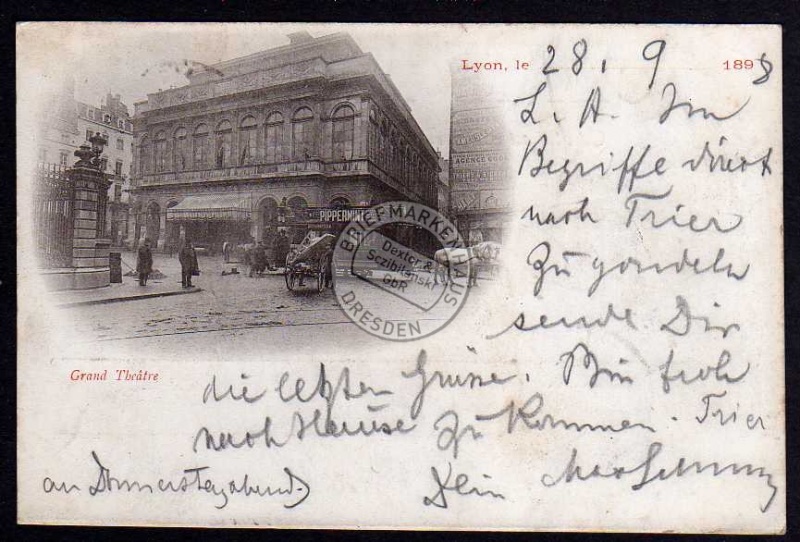 Lyon, le 28. 9 1898
L. A. Im
Begriffe direkt
nach Trier
zu gondeln
sende Dir
die letzten Grüsse. Bin froh
nach Hause zu kommen. Trier
an Donnerstagabend
Dein Max
Grand Théâtre
PIPPERMINT
AGENCE
BRIEFMARKENHAUS
Dexler &
Sczibilanski
GbR
DRESDEN